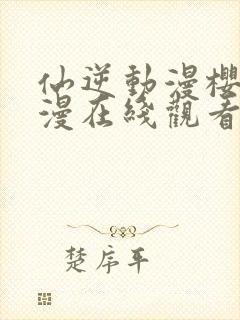 仙逆動漫櫻
漫在綫觀看
楚序平